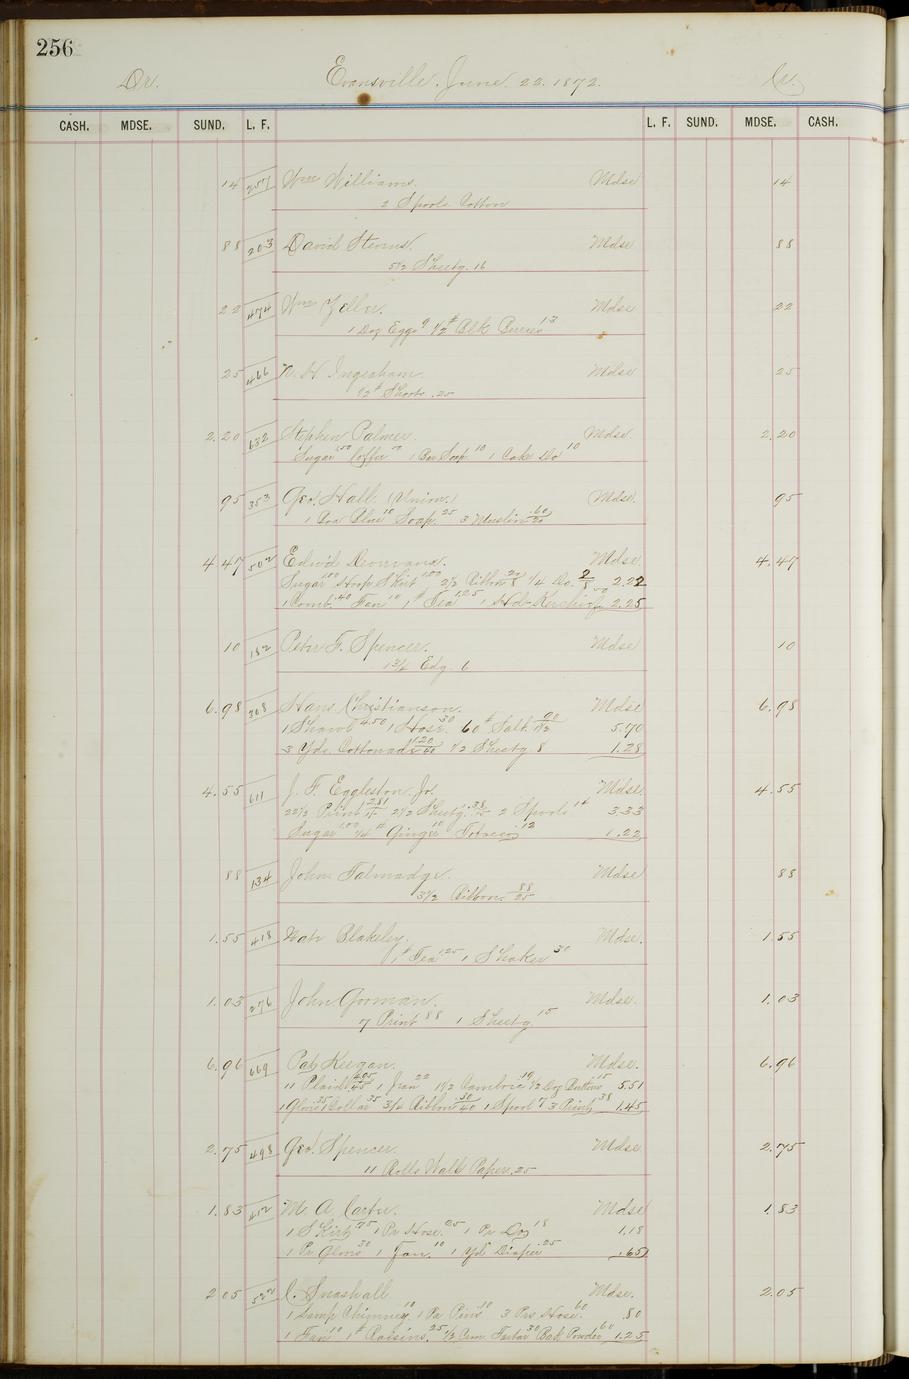 256
Dr. Evansville. June 22. 1872. Cr.
CASH. MDSE. SUND. L. F. L. F. SUND. MDSE. CASH.
14 257 Wm Williams. Mdse 14
2 Spools Cotton
88 203 David Stevens. Mdse 88
5 1/2 Sheetg. 16
22 474 Wm Mdse 22
1 Doz Eggs 9 1/2 # Blk Berries 13
25 466 H. Ingraham. Mdse 25
1/2 # .25
2.20 632 Stephen Palmer. Mdse. 2.20
Sugar Coffee 1 Bar Soap 10 1 Cake Do 10
95 353 Geo. Hall (Union.) Mdse. 95
1 Box Blue 10 Soap. 25 3 Muslin .60/20
4.47 502 Edw'd Mdse 4.47
Sugar 1.00 Hoop Skirt 1.00 2 1/2 Ribbon 1/4 Do. 2.22
1 Comb .40 Fan 10 1 # Tea 1.25 1 Hd-Kerchief 50 2.25
10 182 Peter F. Spencer. Mdse 10
1 3/4 Edg. 6
6.98 308 Hans Christianson. Mdse 6.98
1 Shawl 4.50 1 Hose 30 60 # Salt 90/1 1/2 5.70
3 Yds. Cottonade 1.20/40 1/2 Sheetg 8 1.28
4.55 611 J. F. Eggleston. Jr. Mdse 4.55
22 1/2 Print 2.81 2 1/2 Sheetg. .38/15 2 Spools 14 3.33
Sugar 1.00 1/4 # Ginger 10 Tobacco 12 1.22
88 134 John Talmadge. Mdse 88
3 1/2 Ribbon. 88/25
1.55 418 Nate Blakeley. Mdse. 1.55
1 # Tea 1.25 1 Shaker 30
1.03 276 John Gorman. Mdse. 1.03
7 Print 88 1 Sheetg 15
6.96 669 Pat Keegan. Mdse. 6.96
11 Plaid 1 Jean 22 1 1/2 Cambric 19 1/2 Doz Buttons 15 5.51
1 Glove 35 1 Collar 35 3/4 Ribbon .30/40 1 Spool 7 3 Print 38 1.45
2.75 498 Geo. Spencer. Mdse. 2.75
11 Rolls Wall Paper. 25
1.83 452 M. A. Carter. Mdse 1.83
1 Skirt 75 1 Pr Hose. 25 1 Pr Do 18 1.18
1 Pr Gloves 30 1 Fan. 10 1 Yd Diaper .25 .65
2.05 522 C. Snashall Mdse. 2.05
1 Lamp Chimney, 10 1 Pa Pins 10 3 Prs. Hose. 60 80
1 Fan 10 1 # Raisins. 25 1/2 Crm. Tartar 30 Bak Powder 60 1.25